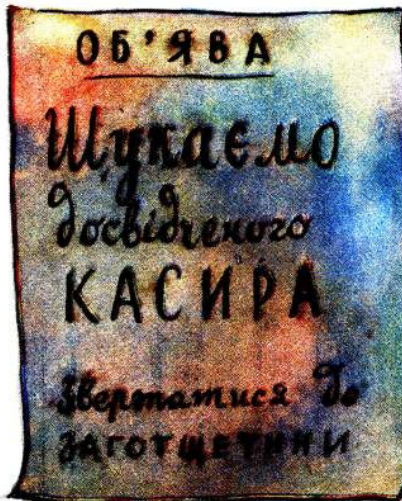 ОБ'ЯВА
Шукаємо
досвідченого
КАСИРА
Звертатися до
ЗАГОТЩЕТИНИ